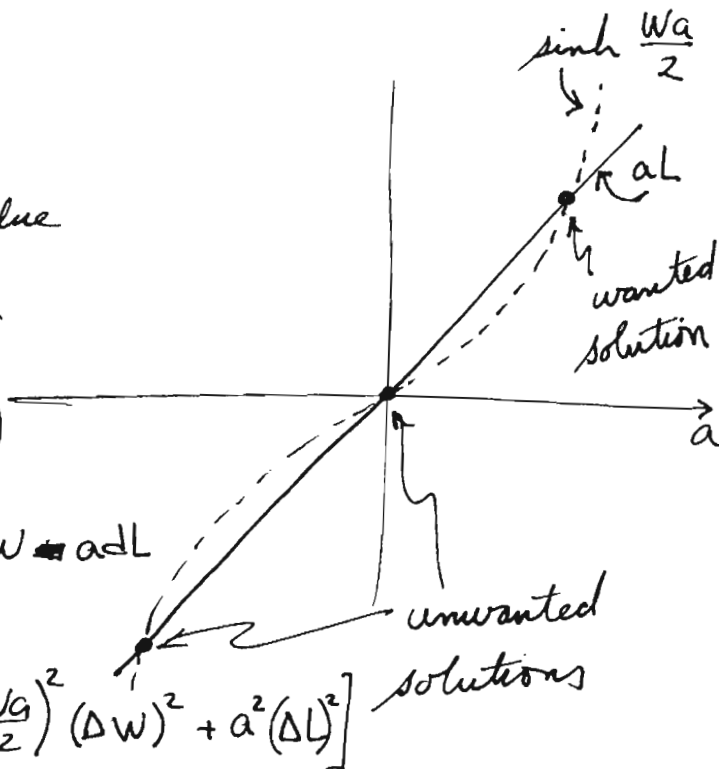 sinh Wa/2
aL
wanted
solution
a
adL
unwanted
solutions
)² (ΔW)² + a²(ΔL)²]